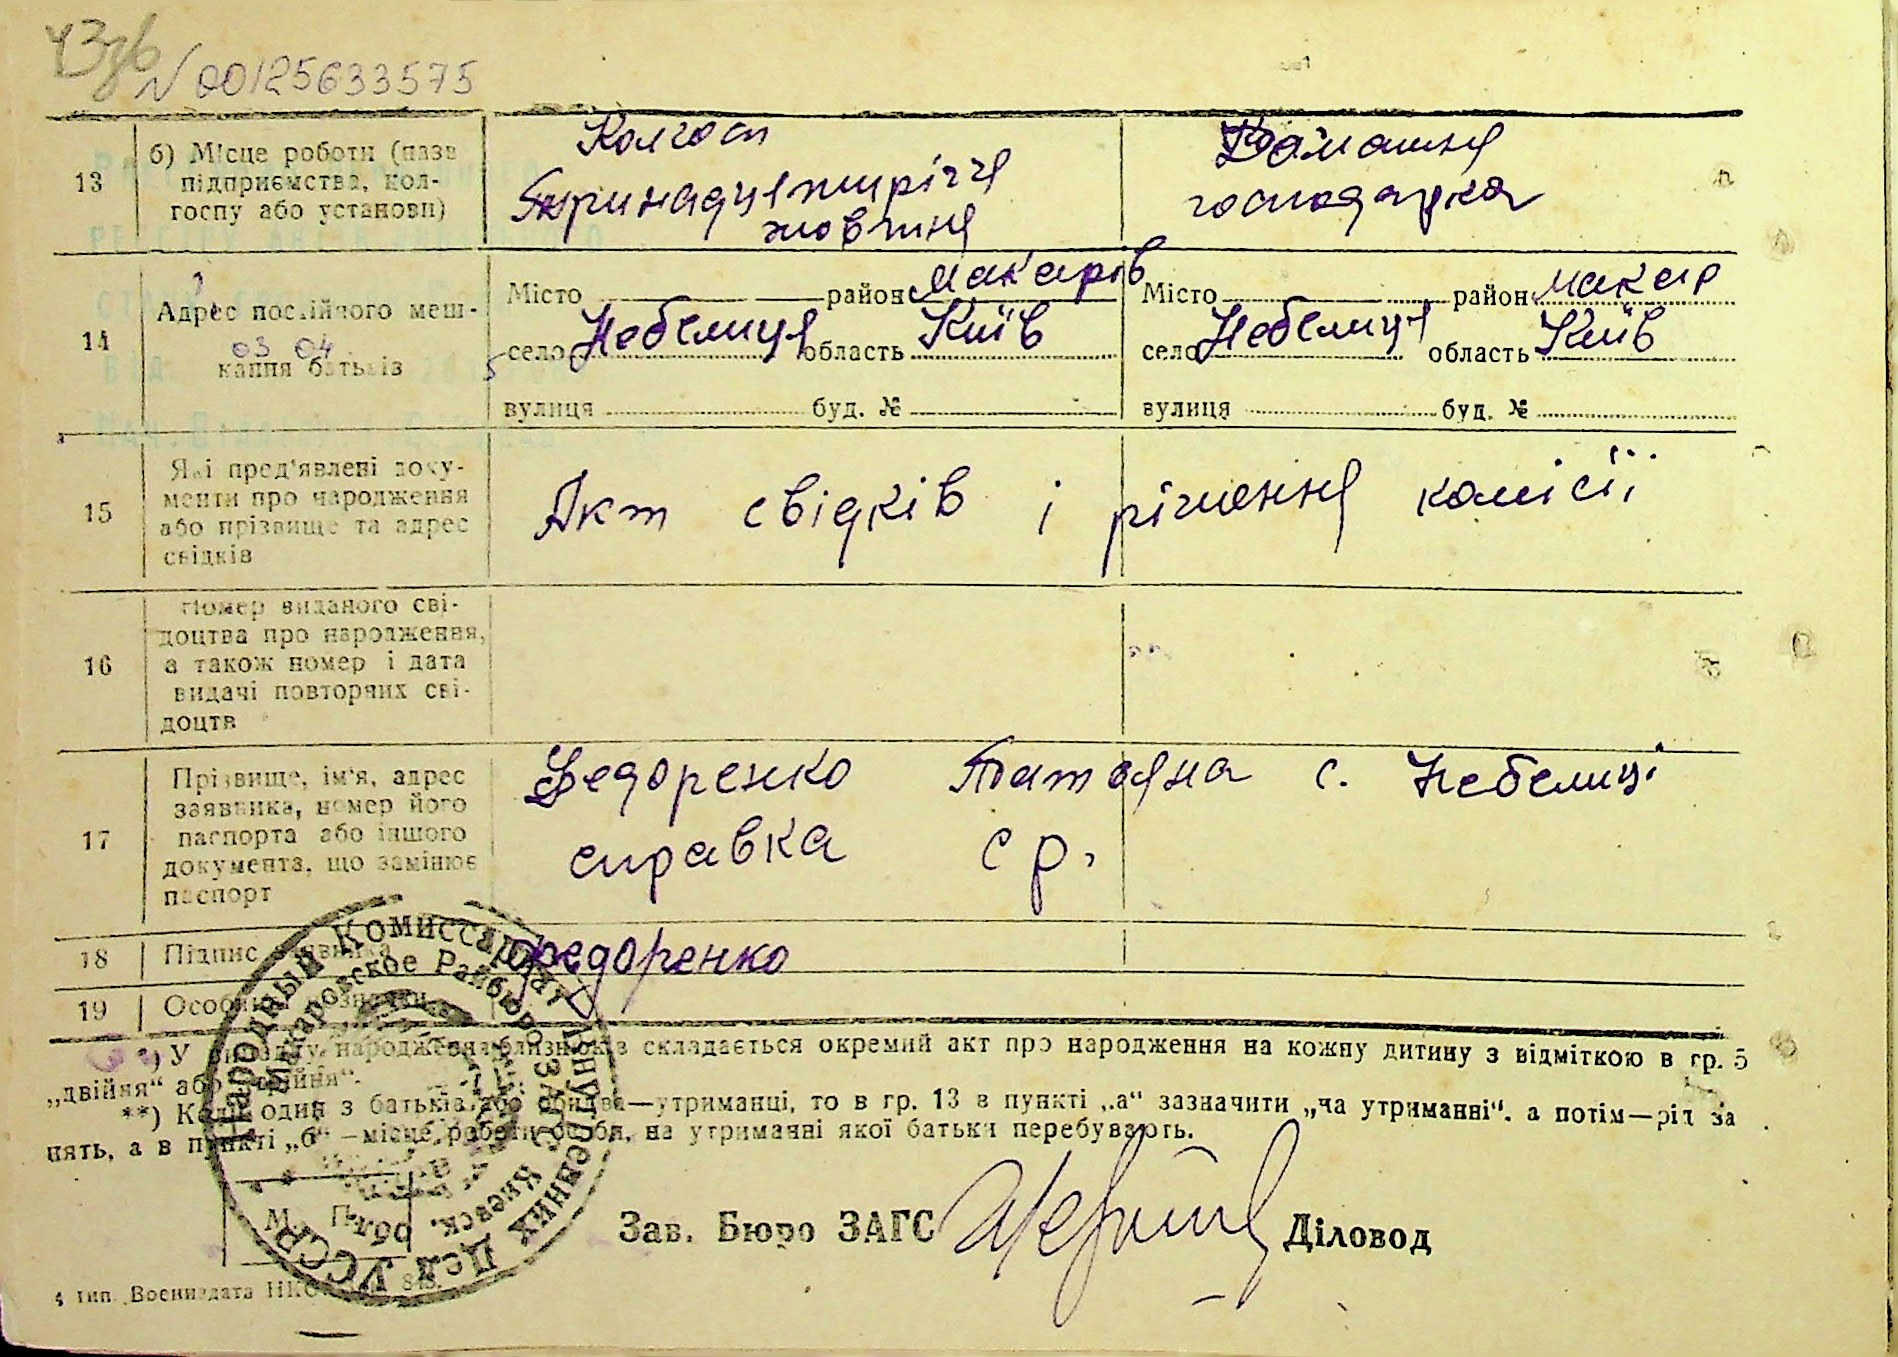 N 00125633575
13
б) Місце роботи (назв
підприємства, кол-
госпу або установи)
Колгосп
Тринадцятиріччя
жовтня
Домашня
господарка
14
Адрес постійного меш-
03 04
кання батьків
Місто район Макарів
село Небелиця область Київ
вулиця буд. №
Місто район Макар
село Небелиця область Київ
вулиця буд. №
15
Які пред'явлені доку-
менти про народження
або прізвище та адрес
свідків
Акт свідків і рішення комісії
16
Номер виданого сві-
доцтва про народження,
а також номер і дата
видачі повторних сві-
доцтв
17
Прізвище, ім'я, адрес
заявника, номер його
паспорта або іншого
документа, що замінює
паспорт
Федоренко Татояна с. Небелиці
справка с р.
18
Підпис заявника
Федоренко
19
Особливі познатки
*) У випадку народження близнюків складається окремий акт про народження на кожну дитину з відміткою в гр. 5
„двійня“ або „трійня“.
**) Коли один з батьків або обидва—утриманці, то в гр. 13 в пункті „а“ зазначити „на утриманні“, а потім—рід за
нять, а в пункті „б“ —місце роботи особи, на утриманні якої батьки перебувають.
Народный Комиссариат Внутренних Дел УССР
Макаровское Райбюро ЗАГС Киевск. обл.
М. П.
Зав. Бюро ЗАГС
Діловод
тип. Воениздата НКО